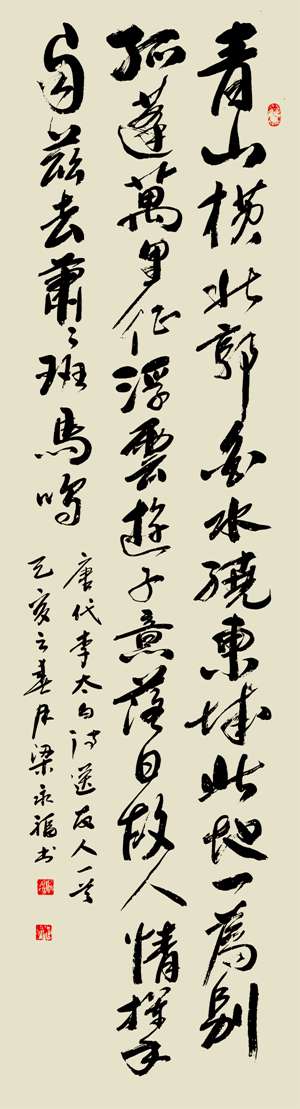 青山横北郭白水繞東城此地一為別
孤蓬萬里征浮雲遊子意落日故人情揮手
自茲去蕭々班馬鳴
唐代李太白詩送友人一首
己亥之春月梁永福书